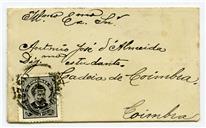 Illmo e Exmo Sr
António José d'Almeida
Digmo estudante.
Cadeia de Coimbra.
Coimbra